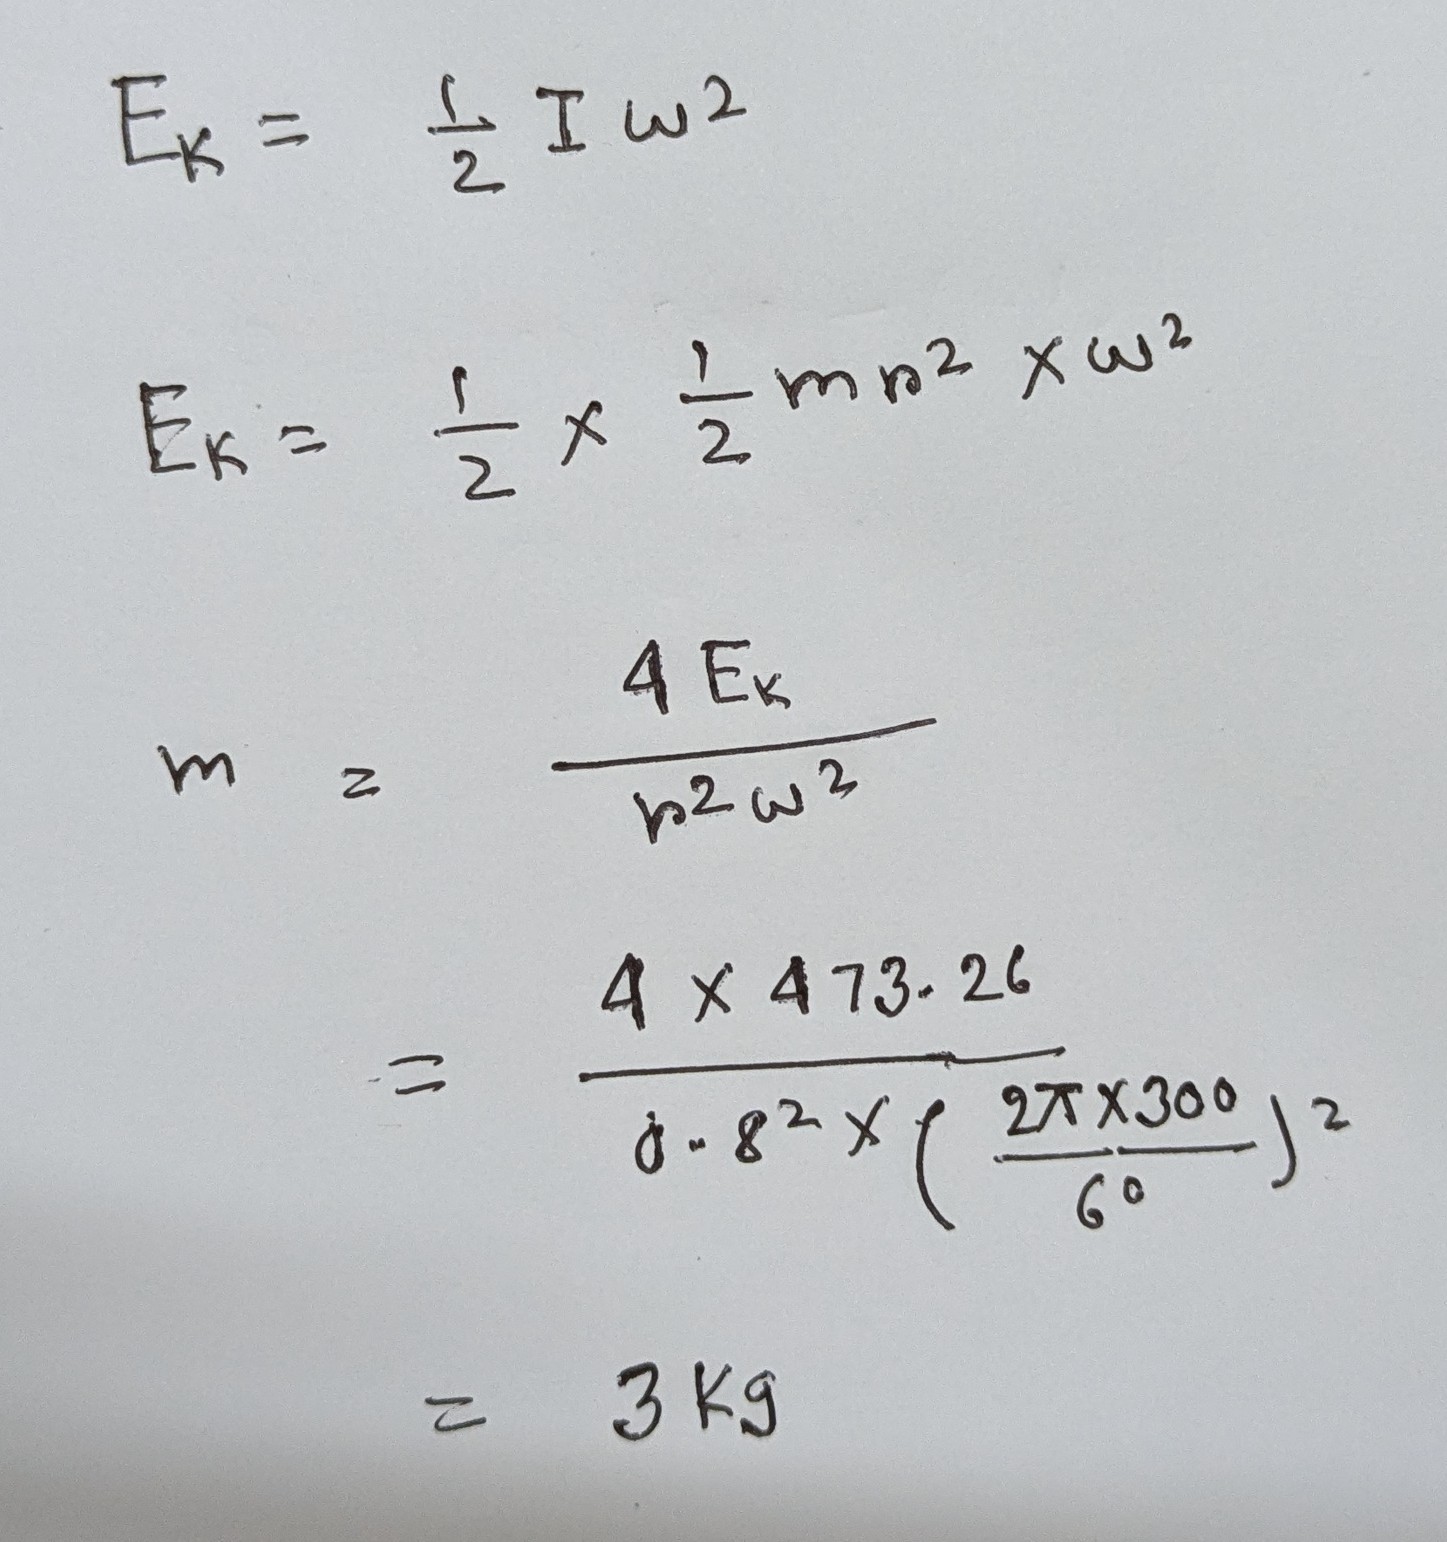 E_K = 1/2 I ω²
E_K = 1/2 × 1/2 m r² × ω²
m = 4 E_K / r² ω²
= 4 × 473.26 / 0.8² × (2π × 300 / 60)²
= 3 Kg